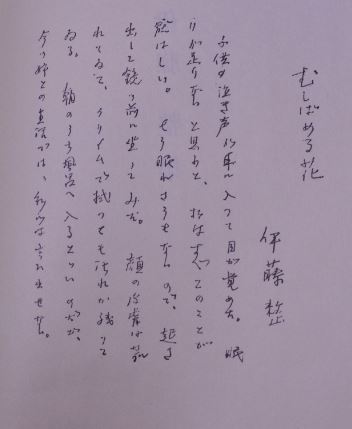 むしばめる花
伊藤整
子供の泣き声が耳に入つて目が覚めた。眠
りが足りないと思ふと、私はすべてのことが
厭はしい。もう眠れさうもないので、起き
出して鏡の前に坐つてみた。顔の皮膚は荒
れてゐて、クリイムで拭つても汚れが残つて
ゐる。朝のうち風呂へ入るといいのだが、
今の姉との生活では、私には言ひ出せない。